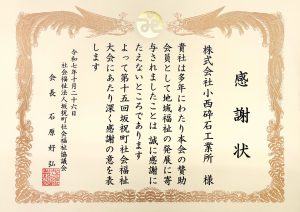 感謝状
株式会社小西砕石工業所 様
貴社は多年にわたり本会の賛助
会員として地域福祉の発展に寄
与されましたことは誠に感謝に
たえないところであります
よって第十五回坂祝町社会福祉
大会にあたり深く感謝の意を表
します
令和七年十月二十六日
社会福祉法人坂祝町社会福祉協議会
会長 石原好弘